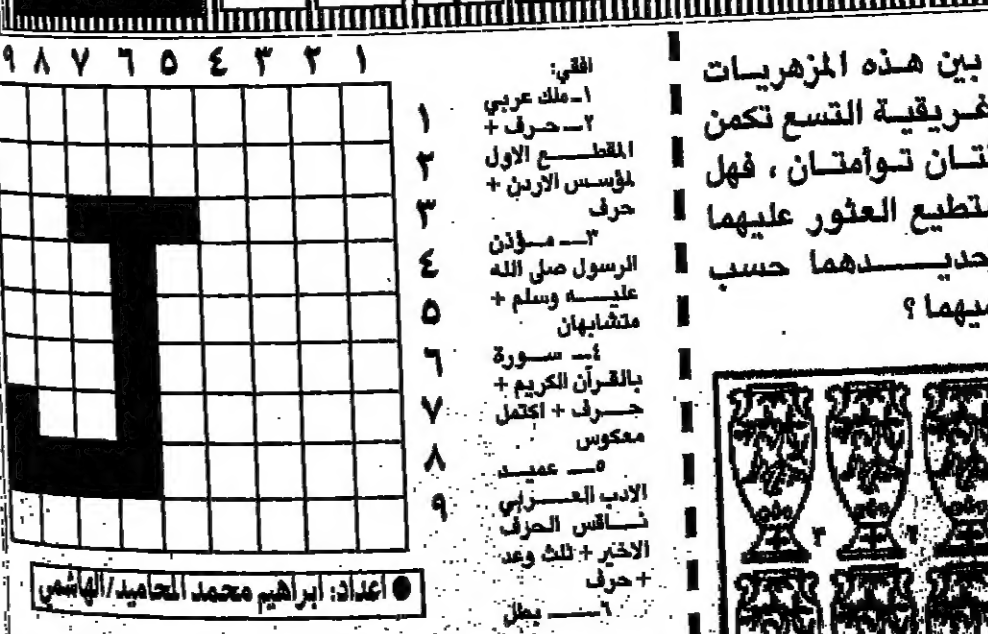 بين هذه المزهريات
التسع تكمن
توأمتان ، فهل
العثور عليهما
حسب
؟
افقي:
١ـ ملك عربي
٢ـ حرف +
المقطع الاول
لمؤسس الاردن +
حرف
٣ـ مؤذن
الرسول صلى الله
عليه وسلم +
متشابهان
٤ـ سورة
بالقرآن الكريم +
حرف + اكتمل
معكوس
٥ـ عميد
الادب العربي
ناقص الحرف
الاخير + ثلث وعد
+ حرف
٦ـ بطل
٩ ٨ ٧ ٦ ٥ ٤ ٣ ٢ ١
١
٢
٣
٤
٥
٦
٧
٨
٩
● اعداد: ابراهيم محمد المحاميد/الهاشمي
٣ ٢